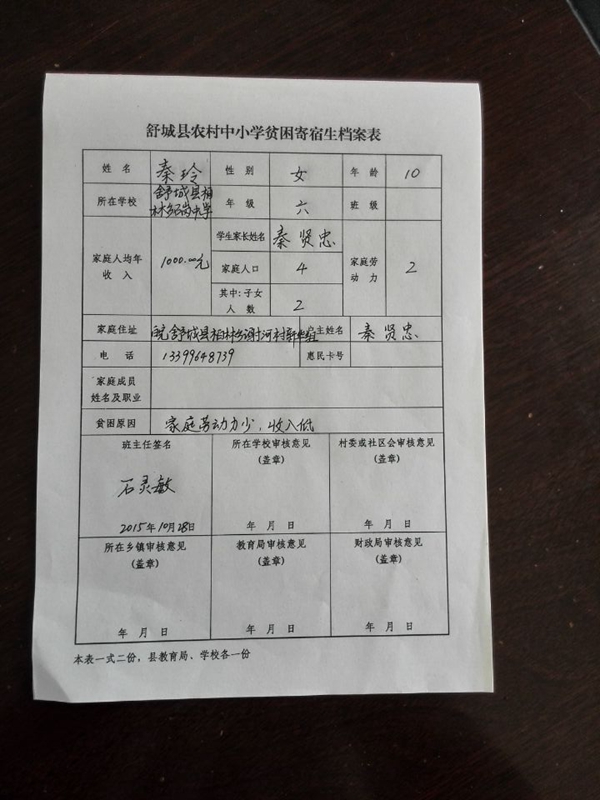 舒城县农村中小学贫困寄宿生档案表
姓名 秦玲 性别 女 年龄 10
所在学校 舒城县柏林乡石岗中学 年级 六 班级
家庭人均年收入 1000.00元 学生家长姓名 秦贤忠 家庭劳动力 2
家庭人口 4
其中:子女人数 2
家庭住址 皖舒城县柏林乡谢河村 户主姓名 秦贤忠
电话 13399648739 惠民卡号
家庭成员姓名及职业
贫困原因 家庭劳动力少,收入低
班主任签名 所在学校审核意见 村委或社区会审核意见
(盖章) (盖章)
石灵敏
2015年10月28日 年 月 日 年 月 日
所在乡镇审核意见 教育局审核意见 财政局审核意见
(盖章) (盖章) (盖章)
年 月 日 年 月 日 年 月 日
本表一式二份,县教育局、学校各一份